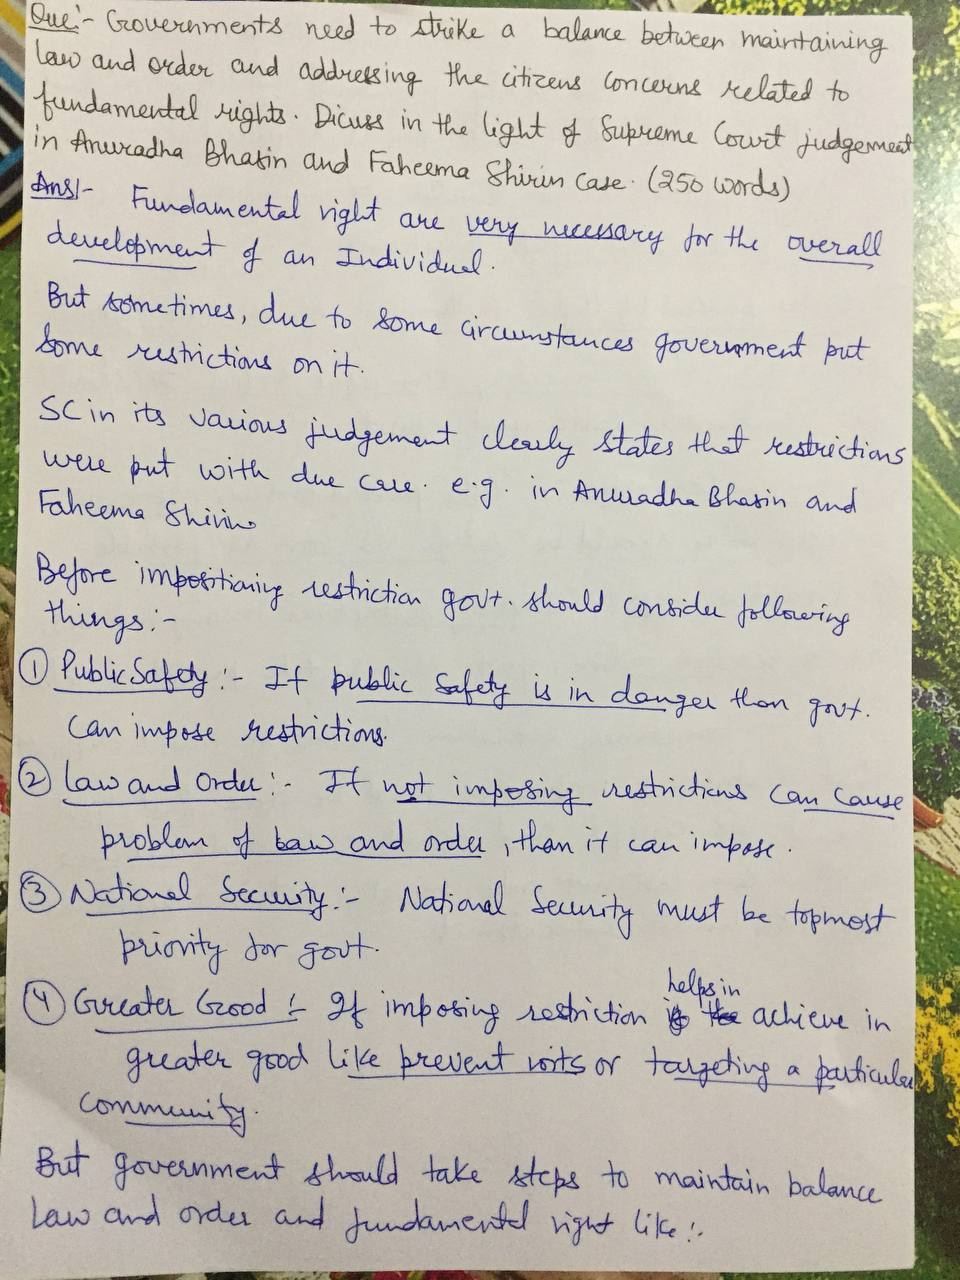 Que:- Governments need to strike a balance between maintaining
law and order and addressing the citizens concerns related to
fundamental rights. Dicuss in the light of Supreme Court judgement
in Anuradha Bhasin and Faheema Shirin case. (250 words)
Ans:- Fundamental right are very necessary for the overall
development of an Individual.
But sometimes, due to some circumstances government put
some restrictions on it.
SC in its various judgement clearly states that restrictions
were put with due care. e.g. in Anuradha Bhasin and
Faheema Shirin.
Before impositioning restriction govt. should consider following
things:-
① Public Safety:- If public safety is in danger than govt.
can impose restrictions.
② Law and Order:- If not imposing restrictions can cause
problem of law and order, than it can impose.
③ National Security:- National Security must be topmost
priority for govt.
④ Greater Good:- If imposing restriction helps in achieve in
greater good like prevent roits or targeting a particular
community.
But government should take steps to maintain balance
law and order and fundamental right like:-